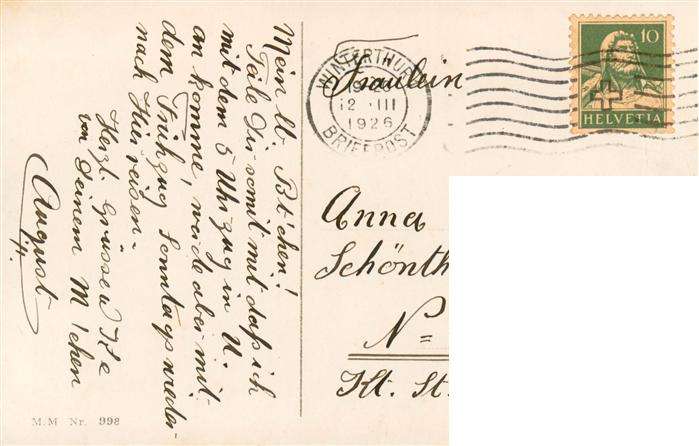 Mein lb
Teile Dir somit mit daß ich
mit dem 5 Uhrzug in U.
an komme, werde aber mit
dem Frühzug Sonntags wieder
nach Hier reisen.
Herzl. Grüssen
von Deinem
August
M.M Nr. 998
WINTERTHUR
12 III
1926
BRIEFPOST
10
HELVETIA
Fräulein
Anna
Schönth
N=
Kt. St.